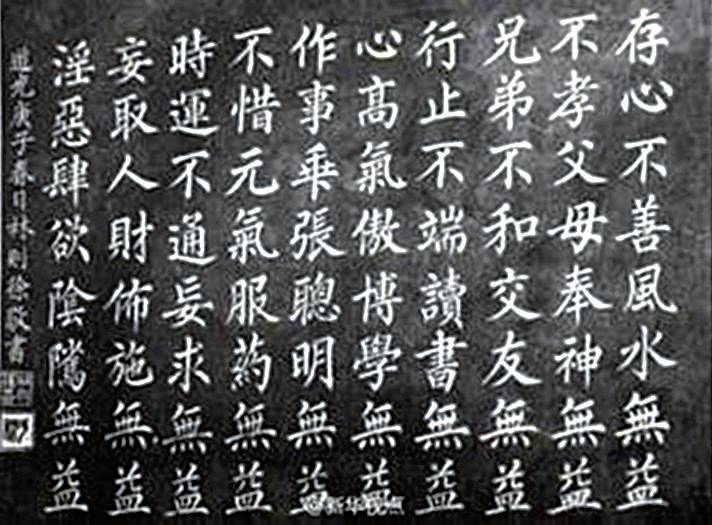 存心不善風水無益
不孝父母奉神無益
兄弟不和交友無益
行止不端讀書無益
心高氣傲博學無益
作事乖張聰明無益
不惜元氣服药無益
時運不通妄求無益
妄取人財佈施無益
淫惡肆欲陰隲無益
道光庚子春日林則徐敬書
@新华视点